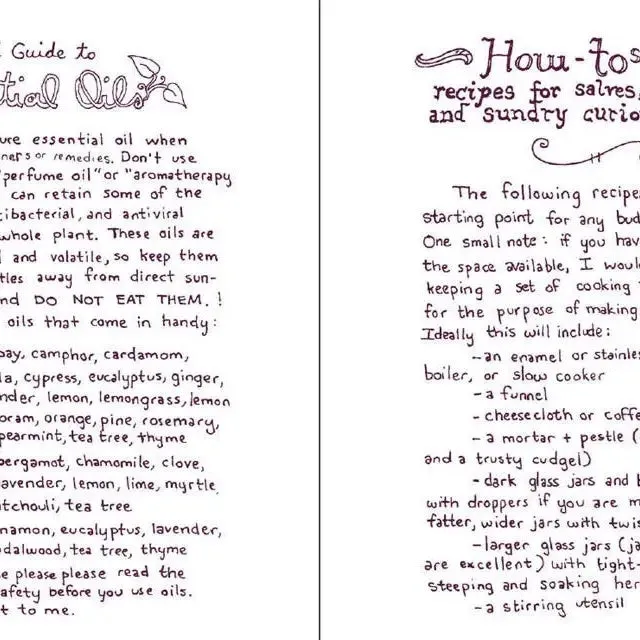 Guide to
tial Oils
ure essential oil when
ners or remedies. Don't use
"perfume oil" or "aromatherapy
can retain some of the
tibacterial, and antiviral
whole plant. These oils are
and volatile, so keep them
tles away from direct sun-
nd DO NOT EAT THEM. !
oils that come in handy:
bay, camphor, cardamom,
la, cypress, eucalyptus, ginger,
nder, lemon, lemongrass, lemon
oram, orange, pine, rosemary,
pearmint, tea tree, thyme
bergamot, chamomile, clove,
lavender, lemon, lime, myrtle,
tchouli, tea tree
nnamon, eucalyptus, lavender,
dalwood, tea tree, thyme
se please please read the
afety before you use oils.
t to me.
How-tos
recipes for salves,
and sundry curio
The following recipe
starting point for any bud
One small note: if you hav
the space available, I woul
keeping a set of cooking
for the purpose of making
Ideally this will include:
--an enamel or stainles
boiler, or slow cooker
-a funnel
-cheesecloth or coffe
-a mortar + pestle (
and a trusty cudgel)
-dark glass jars and b
with droppers if you are m
fatter, wider jars with twis
-larger glass jars (ja
are excellent) with tight-
steeping and soaking her
-a stirring utensil